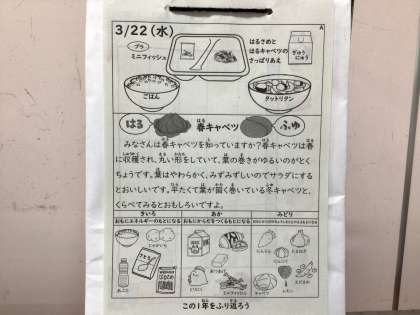 3/22(水)
A
プラ
ミニフィッシュ
はるさめと
はるキャベツの
さっぱりあえ
ぎゅう
にゅう
ごはん
タットリタン
はる
春キャベツ
ふゆ
みなさんは春キャベツを知っていますか?春キャベツは春
に収穫され、丸い形をしていて、葉の巻きがゆるいのがとく
ちょうです。葉はやわらかく、みずみずしいのでサラダにする
とおいしいです。平たくて葉が固く巻いている冬キャベツと、
くらべてみるとおもしろいですよ。
きいろ
あか
みどり
おもにエネルギーのもとになる
おもにからだをつくるもとになる
こめ
じゃがいも
にんじん
しょうが
にんにく
とりにく
ミニフィッシュ
キャベツ
レモン
えだまめ
この1年をふり返ろう